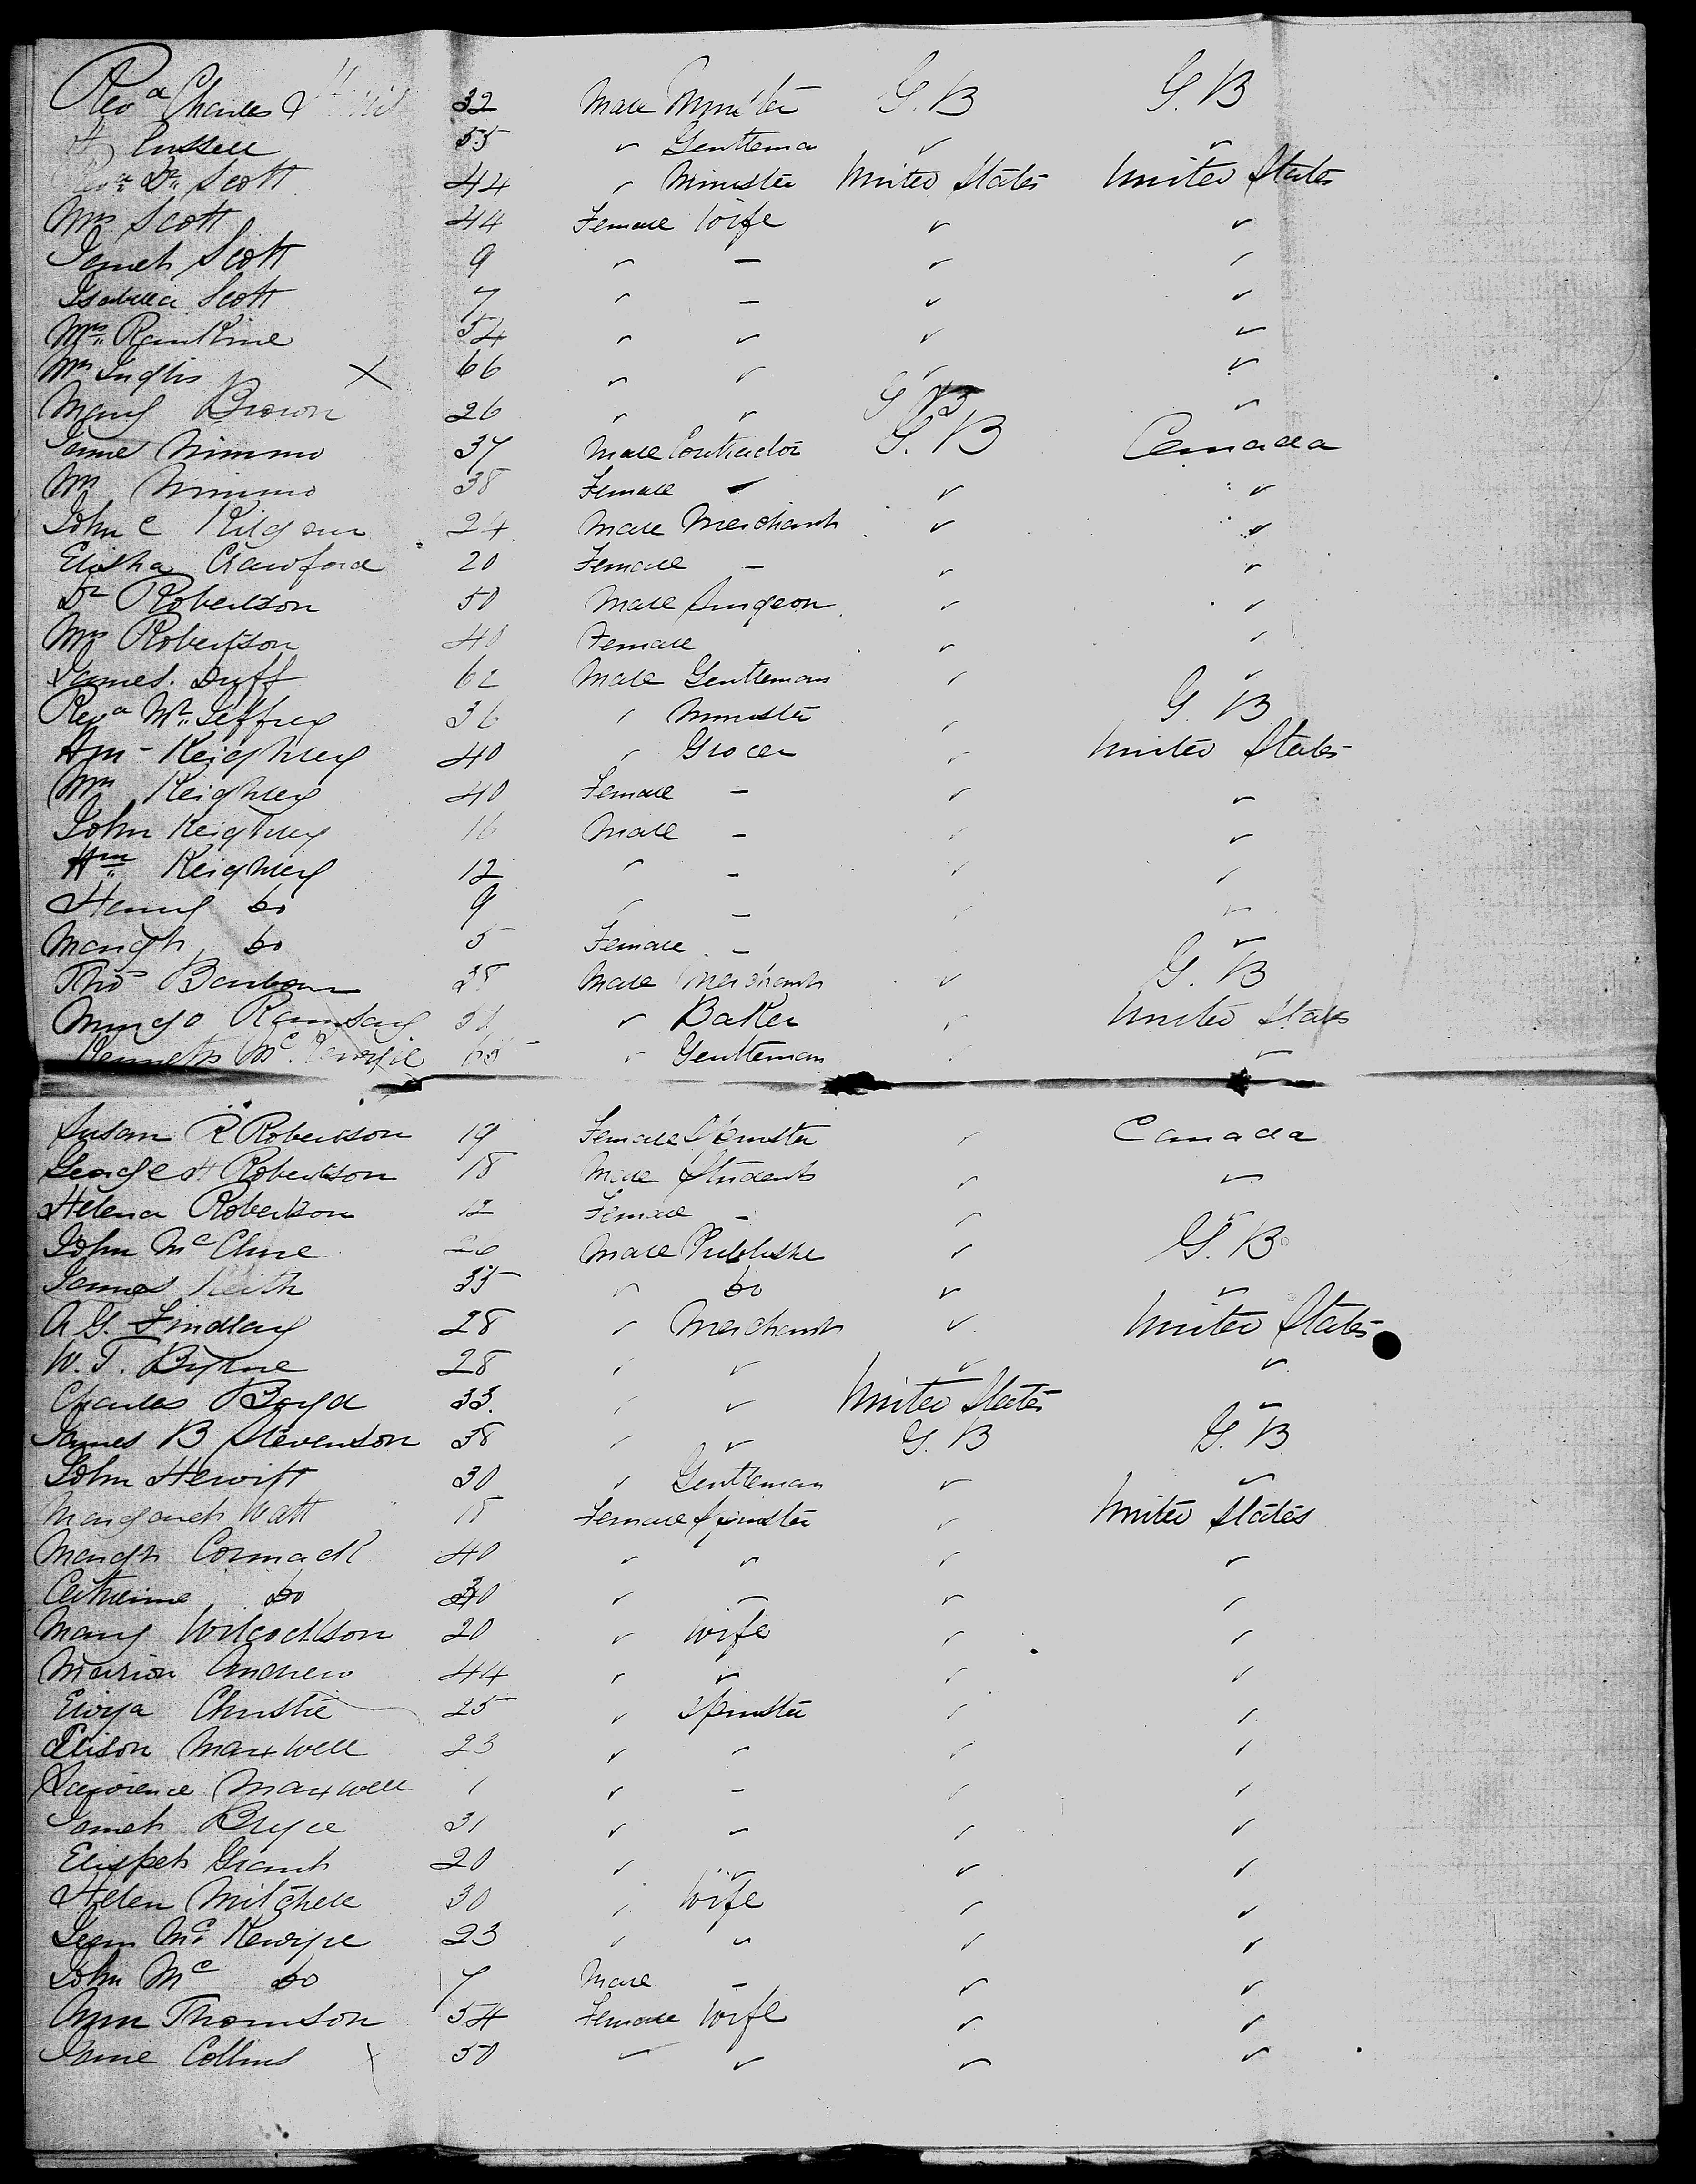 Revd Charles 32 Male Minister G.B G.B
H Russell 55 " Gentleman " "
Revd Dr Scott 44 " Minister United States United States
Mrs Scott 44 Female Wife " "
Janet Scott 9 " - " "
Isabella Scott 7 " - " "
Mrs Rankine 54 " " " "
Mrs Inglis X 66 " " " "
Mary Brown 26 " " G B "
Nimmo 37 Male Contractor G.B Canada
Mrs Nimmo 38 Female " " "
John C Kilgour 24 Male Merchant " "
Crawford 20 Female - " "
Dr Robertson 50 Male Surgeon " "
Mrs Robertson 40 Female " "
James Duff 62 Male Gentleman " "
Revd Mr Jeffrey 36 " Minister " G.B
Wm Keighley 40 " Grocer " United States
Mrs Keighley 40 Female - " "
John Keighley 16 Male - " "
Wm Keighley 12 " - " "
Henry Do 9 " - " "
Margt Do 5 Female - " "
Thos Barbour 28 Male Merchant " G.B
Mungo Ramsay " Baker " United States
Kenneth McKenzie 65 " Gentleman " "
Susan R Robertson 19 Female Spinster " Canada
George H Robertson 18 Male Student " "
Helena Robertson 12 Female - " "
John McClure 20 Male Publisher " G.B
James Keith 35 " Do " "
A G. Findlay 28 " Merchant " United States
W. T. Byrne 28 " " " "
Charles Boyd 33. " " United States "
James B Stevenson 38 " " G.B G.B
John Hewitt 30 " Gentleman " "
Margaret Watt 18 Female Spinster " United States
Margt Cormack 40 " " " "
Catherine Do 30 " " " "
Mary Wilcockson 20 " Wife " "
Marion Andrew 44 " " " "
Eliza Christie 25 " Spinster " "
Alison Maxwell 23 " " " "
Lawrence Maxwell 1 " - " "
Janet Bryce 31 " " " "
Elispet Grant 20 " " " "
Helen Mitchell 30 " Wife " "
Jean McKenzie 23 " " " "
John Mc Do 7 Male - " "
Ann Thomson 54 Female Wife " "
Jane Collins X 50 " " " "